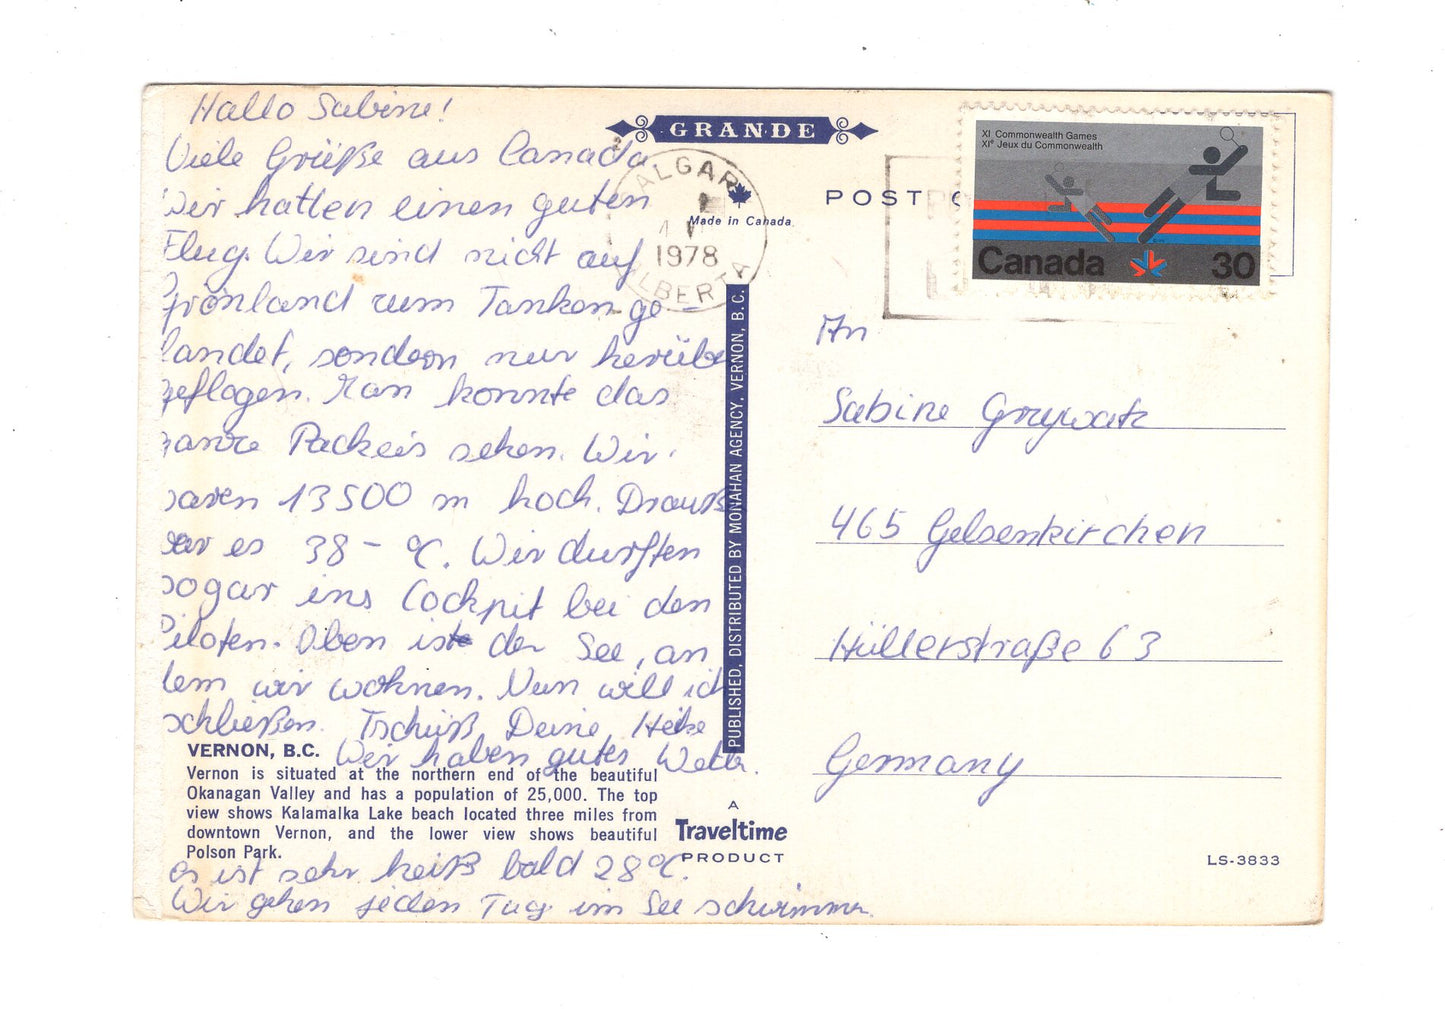 Hallo Sabine!
Viele Grüße aus Canada
Wir hatten einen guten
Flug. Wir sind nicht auf
Grönland zum Tanken ge
landet, sondern nur herübe
geflogen. Man konnte das
ganze Packeis sehen. Wir
waren 13500 m hoch. Drauß
war es 38 - °C. Wir durften
sogar ins Cockpit bei den
Piloten. Oben ist der See, an
dem wir wohnen. Nun will ich
schließen. Tschüß Deine Heike
Wir haben gutes Wetter.
es ist sehr heiß bald 28°C.
Wir gehen jeden Tag im See schwimmen.
VERNON, B.C.
Vernon is situated at the northern end of the beautiful
Okanagan Valley and has a population of 25,000. The top
view shows Kalamalka Lake beach located three miles from
downtown Vernon, and the lower view shows beautiful
Polson Park.
GRANDE
Made in Canada
CALGARY
1978
ALBERTA
PUBLISHED, DISTRIBUTED BY MONAHAN AGENCY, VERNON, B.C.
A
Traveltime
PRODUCT
POSTC
XI Commonwealth Games
XIe Jeux du Commonwealth
Canada 30
An
Sabine
465 Gelsenkirchen
Hüllerstraße 63
Germany
LS-3833